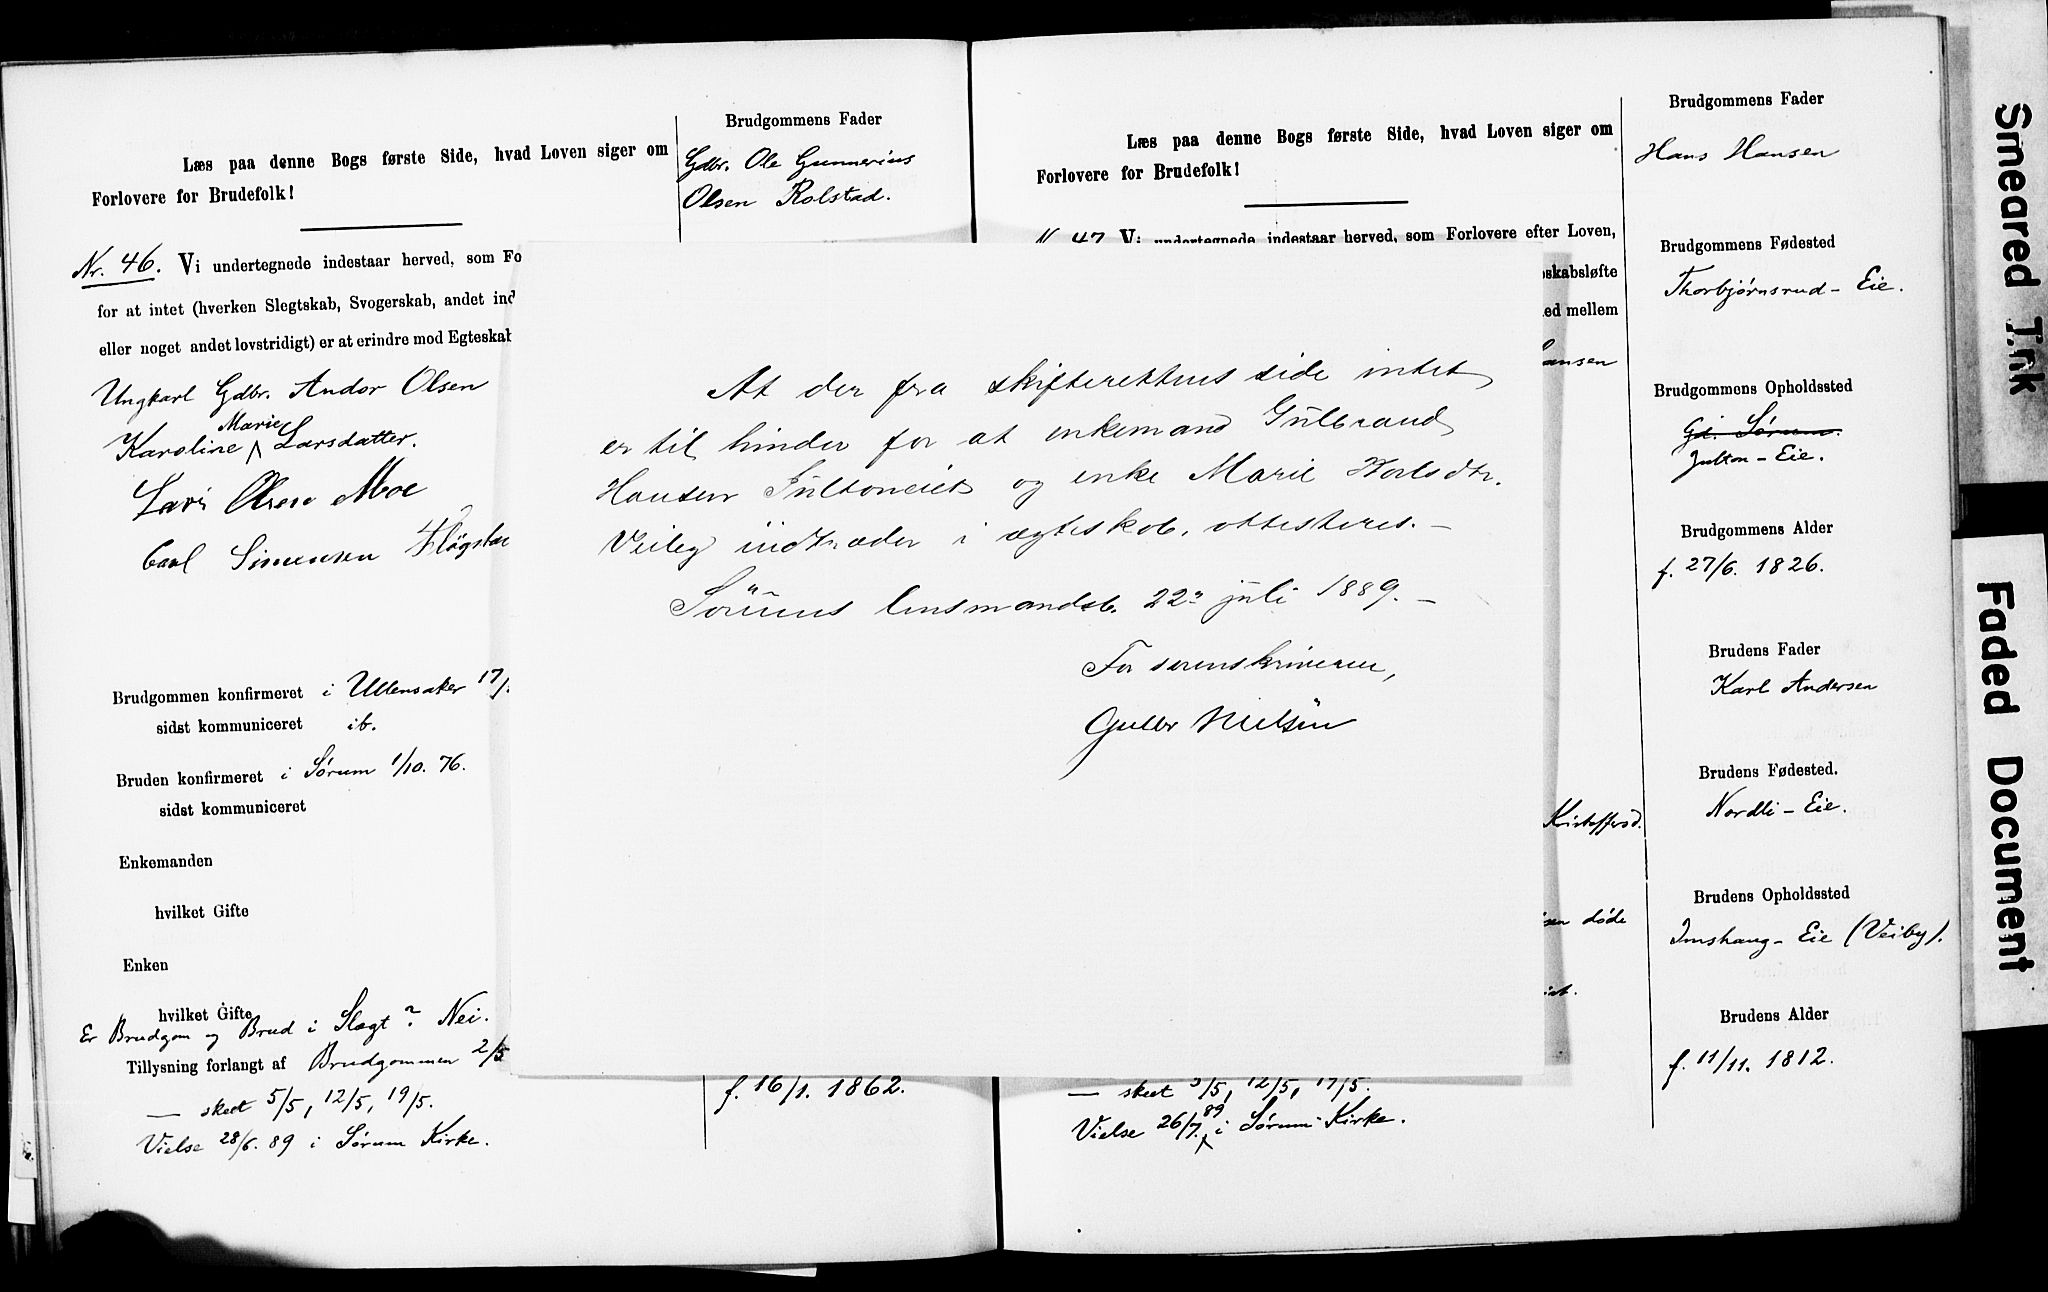 Læs paa denne Bogs første Side, hvad Loven siger om
Forlovere for Brudefolk!
Nr. 46. Vi undertegnede indestaar herved, som Fo
for at intet (hverken Slegtskab, Svogerskab, andet ind
eller noget andet lovstridigt) er at erindre mod Egteskab
Ungkarl Gdbr. Andor Olsen
Marie
Karoline Larsdatter.
Lars Olsen Moe
Carl Simensen
Brudgommen konfirmeret i Ullensaker 17/
sidst kommuniceret ib.
Bruden konfirmeret i Sørum 1/10. 76.
sidst kommuniceret
Enkemanden
hvilket Gifte
Enken
hvilket Gifte
Er Brudgom og Brud i Slægt? Nei.
Tillysning forlangt af Brudgommen 2/5
— skeet 5/5, 12/5, 19/5.
Vielse 28/6. 89 i Sørum Kirke.
Brudgommens Fader
Gdbr. Ole Gunnerius
Olsen Rolstad.
f. 16/1. 1862.
At der fra skifterettens side intet
er til hinder for at enkemand Gulbrand
Hansen Jultoneiet og enke Marie Karlsdtr.
Veiby indtræder i ægteskab, attesteres. —
Sørums lensmandsb. 22 juli 1889. —
For sorenskriveren,
Gulbr Nielsen
Læs paa denne Bogs første Side, hvad Loven siger om
Forlovere for Brudefolk!
N. 47. Vi undertegnede indestaar herved, som Forlovere efter Loven,
skabsløfte
ed mellem
ansen
Kristoffersd.
sen døde
— skeet 5/5, 12/5, 19/5.
89
Vielse 26/7. i Sørum Kirke.
Brudgommens Fader
Hans Hansen
Brudgommens Fødested
Thorbjørnsrud - Eie.
Brudgommens Opholdssted
Gd. Sørum.
Julton - Eie.
Brudgommens Alder
f. 27/6. 1826.
Brudens Fader
Karl Andersen
Brudens Fødested.
Nordli - Eie.
Brudens Opholdssted
Imshaug - Eie (Veiby).
Brudens Alder
f. 11/11. 1812.
Smeared Ink
Faded Document